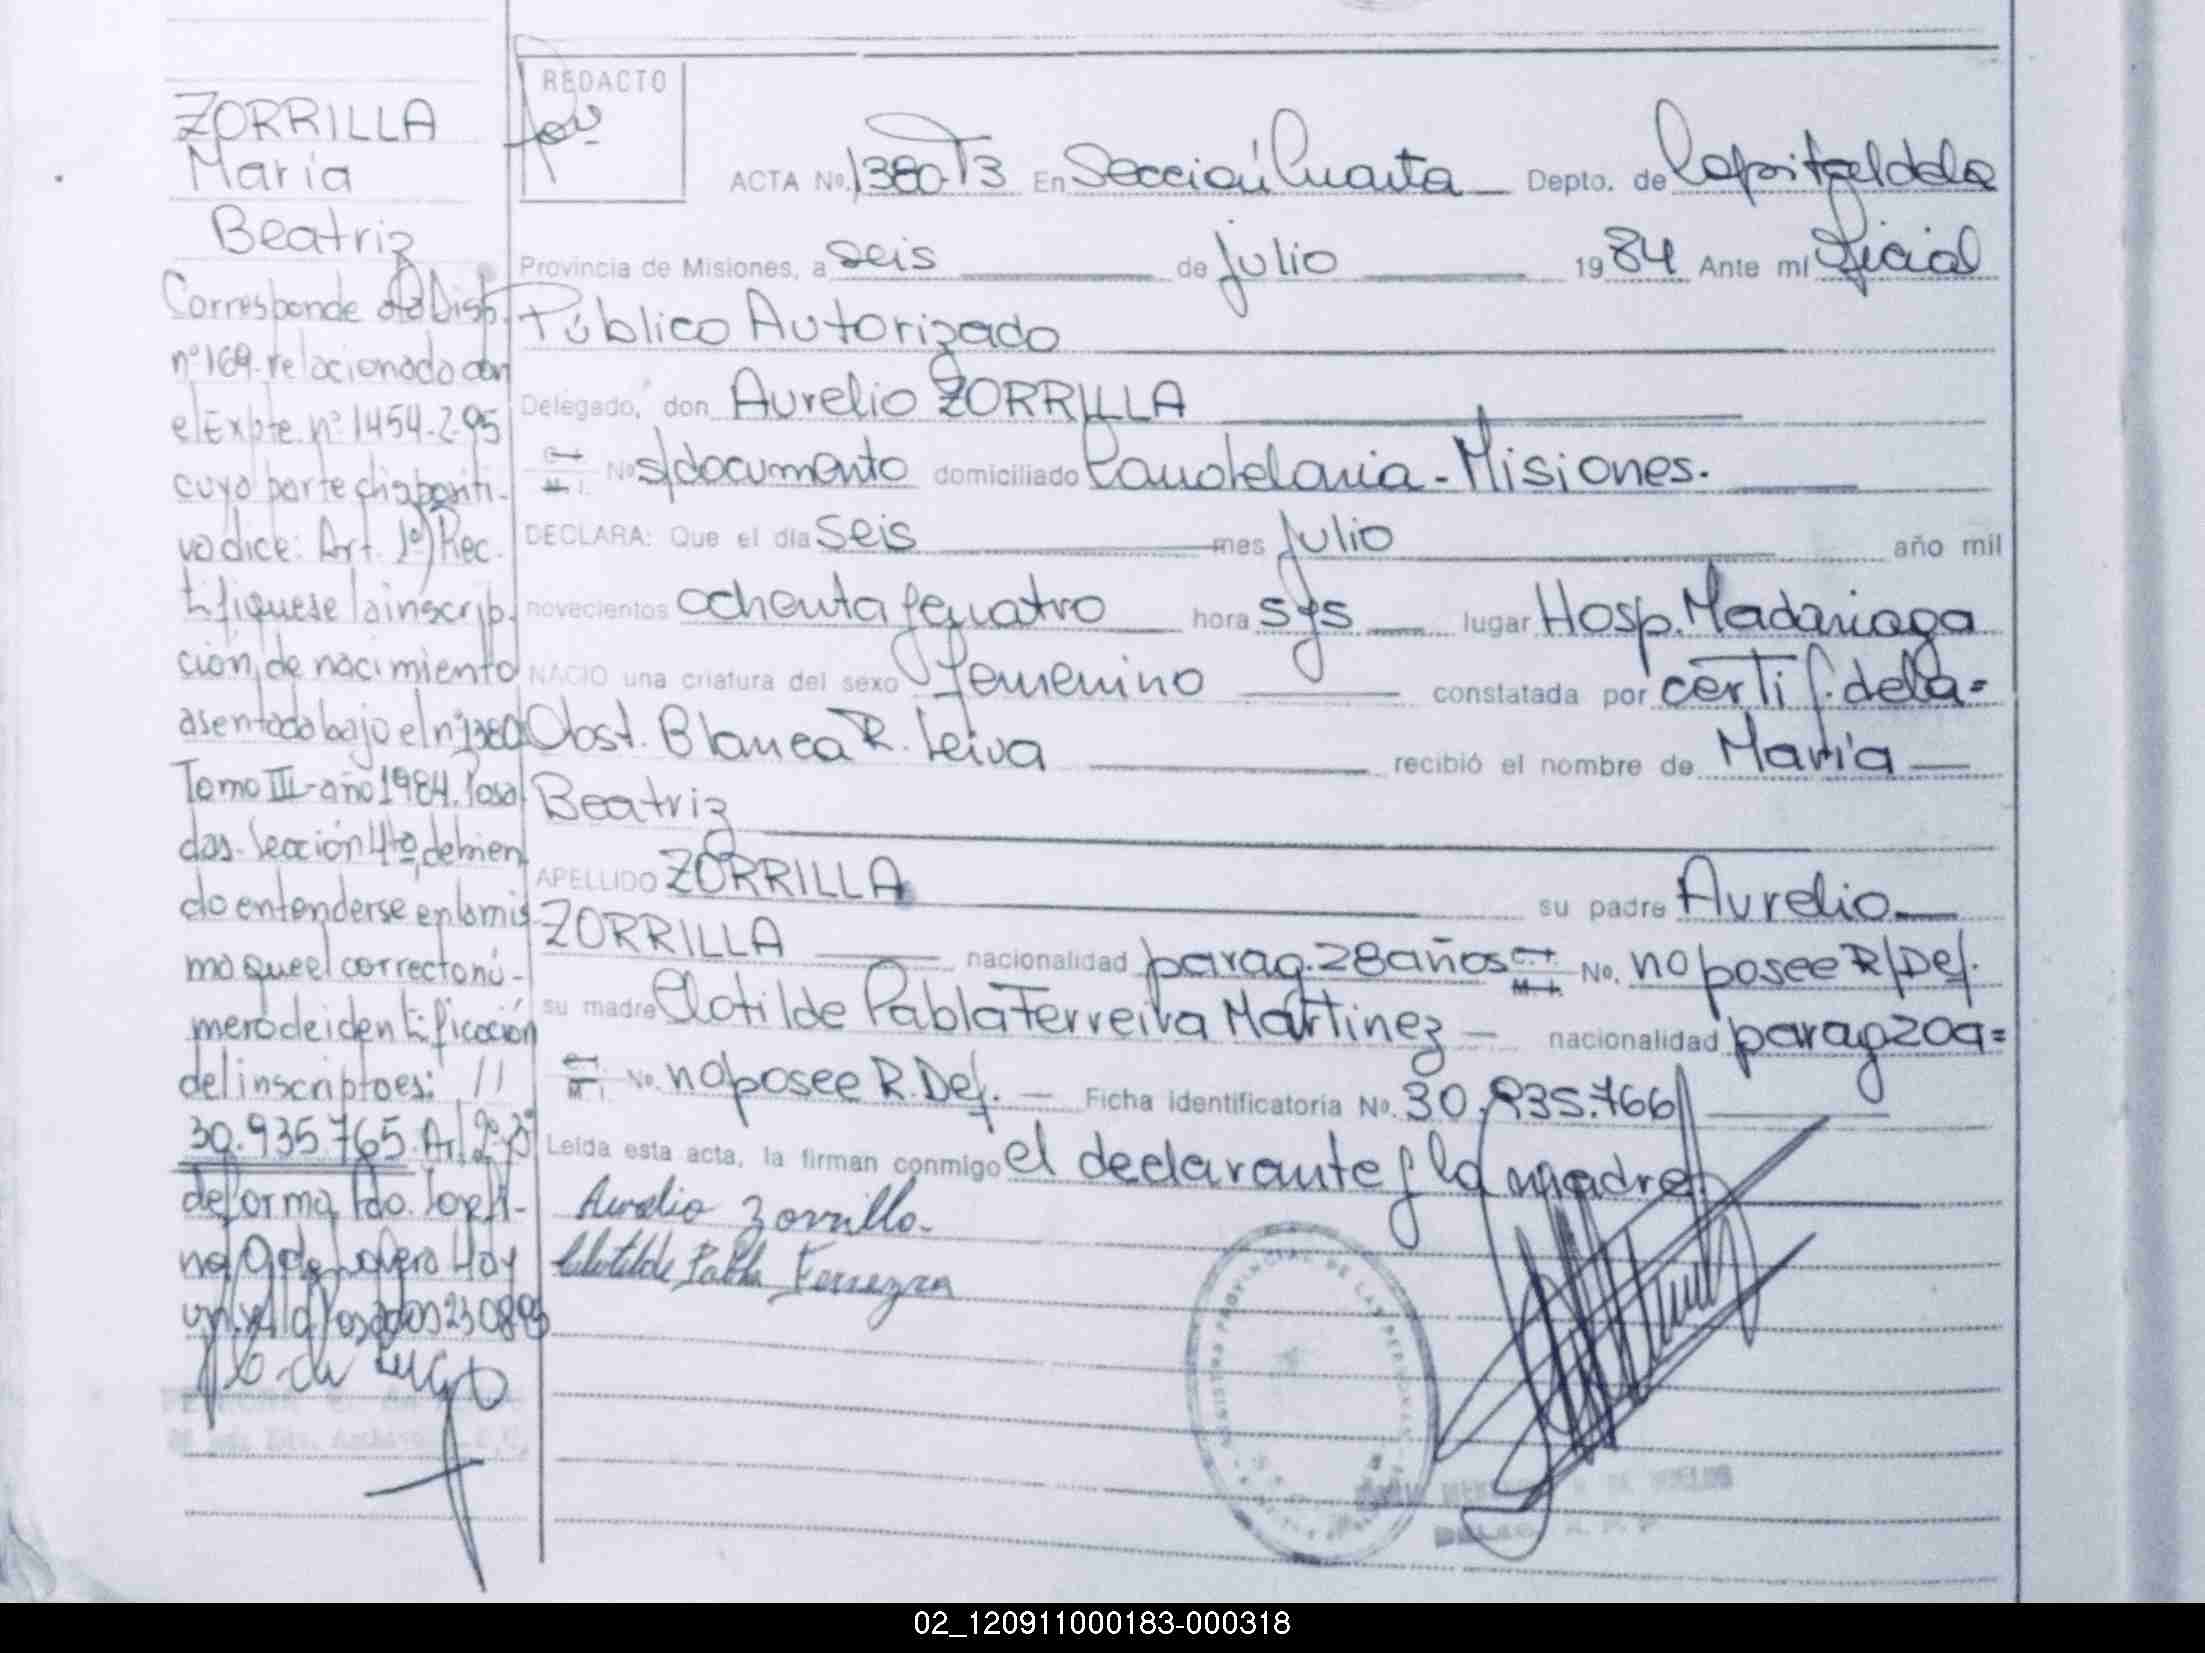 ZORRILLA
María
Beatriz
Corresponde a la Disp.
nº 169. relacionado con
el Expte. nº 1454-2-95
cuya parte dispositi-
va dice: Art. 1º) Rec.
tifiquese la inscrip.
ción de nacimiento
asentada bajo el nº 1380
Tomo III-año 1984. Posa
das. Sección 4ta, debien
do entenderse en la mis
ma que el correcto nú-
mero de identificación
del inscripto es: //
30.935.765. Art. 2º y 3º
de forma. Fdo.
Posadas 23 08 95
REDACTO
ACTA No. 1380-T3 En Sección Cuarta Depto. de Capital de la
Provincia de Misiones, a seis de julio 1984 Ante mí Oficial
Público Autorizado
Delegado, don Aurelio ZORRILLA
C. I. M. I. No s/documento domiciliado Candelaria - Misiones.
DECLARA: Que el día seis mes julio año mil
novecientos ochenta y cuatro hora 5 y 5 lugar Hosp. Madariaga
NACIO una criatura del sexo femenino constatada por certif. de la=
Obst. Blanca R. Leiva recibió el nombre de María
Beatriz
APELLIDO ZORRILLA su padre Aurelio
ZORRILLA nacionalidad parag. 28 años C. I. M. I. No. no posee R/Def.
su madre Clotilde Pabla Ferreira Martinez nacionalidad parag 20a=
C. I. M. I. No. no posee R. Def. Ficha identificatoria No. 30.935.766
Leída esta acta, la firman conmigo el declarante y la madre.
Aurelio Zorrilla.
Clotilde Pabla Ferreyra
REGISTRO PROVINCIAL DE LAS PERSONAS
02_120911000183-000318